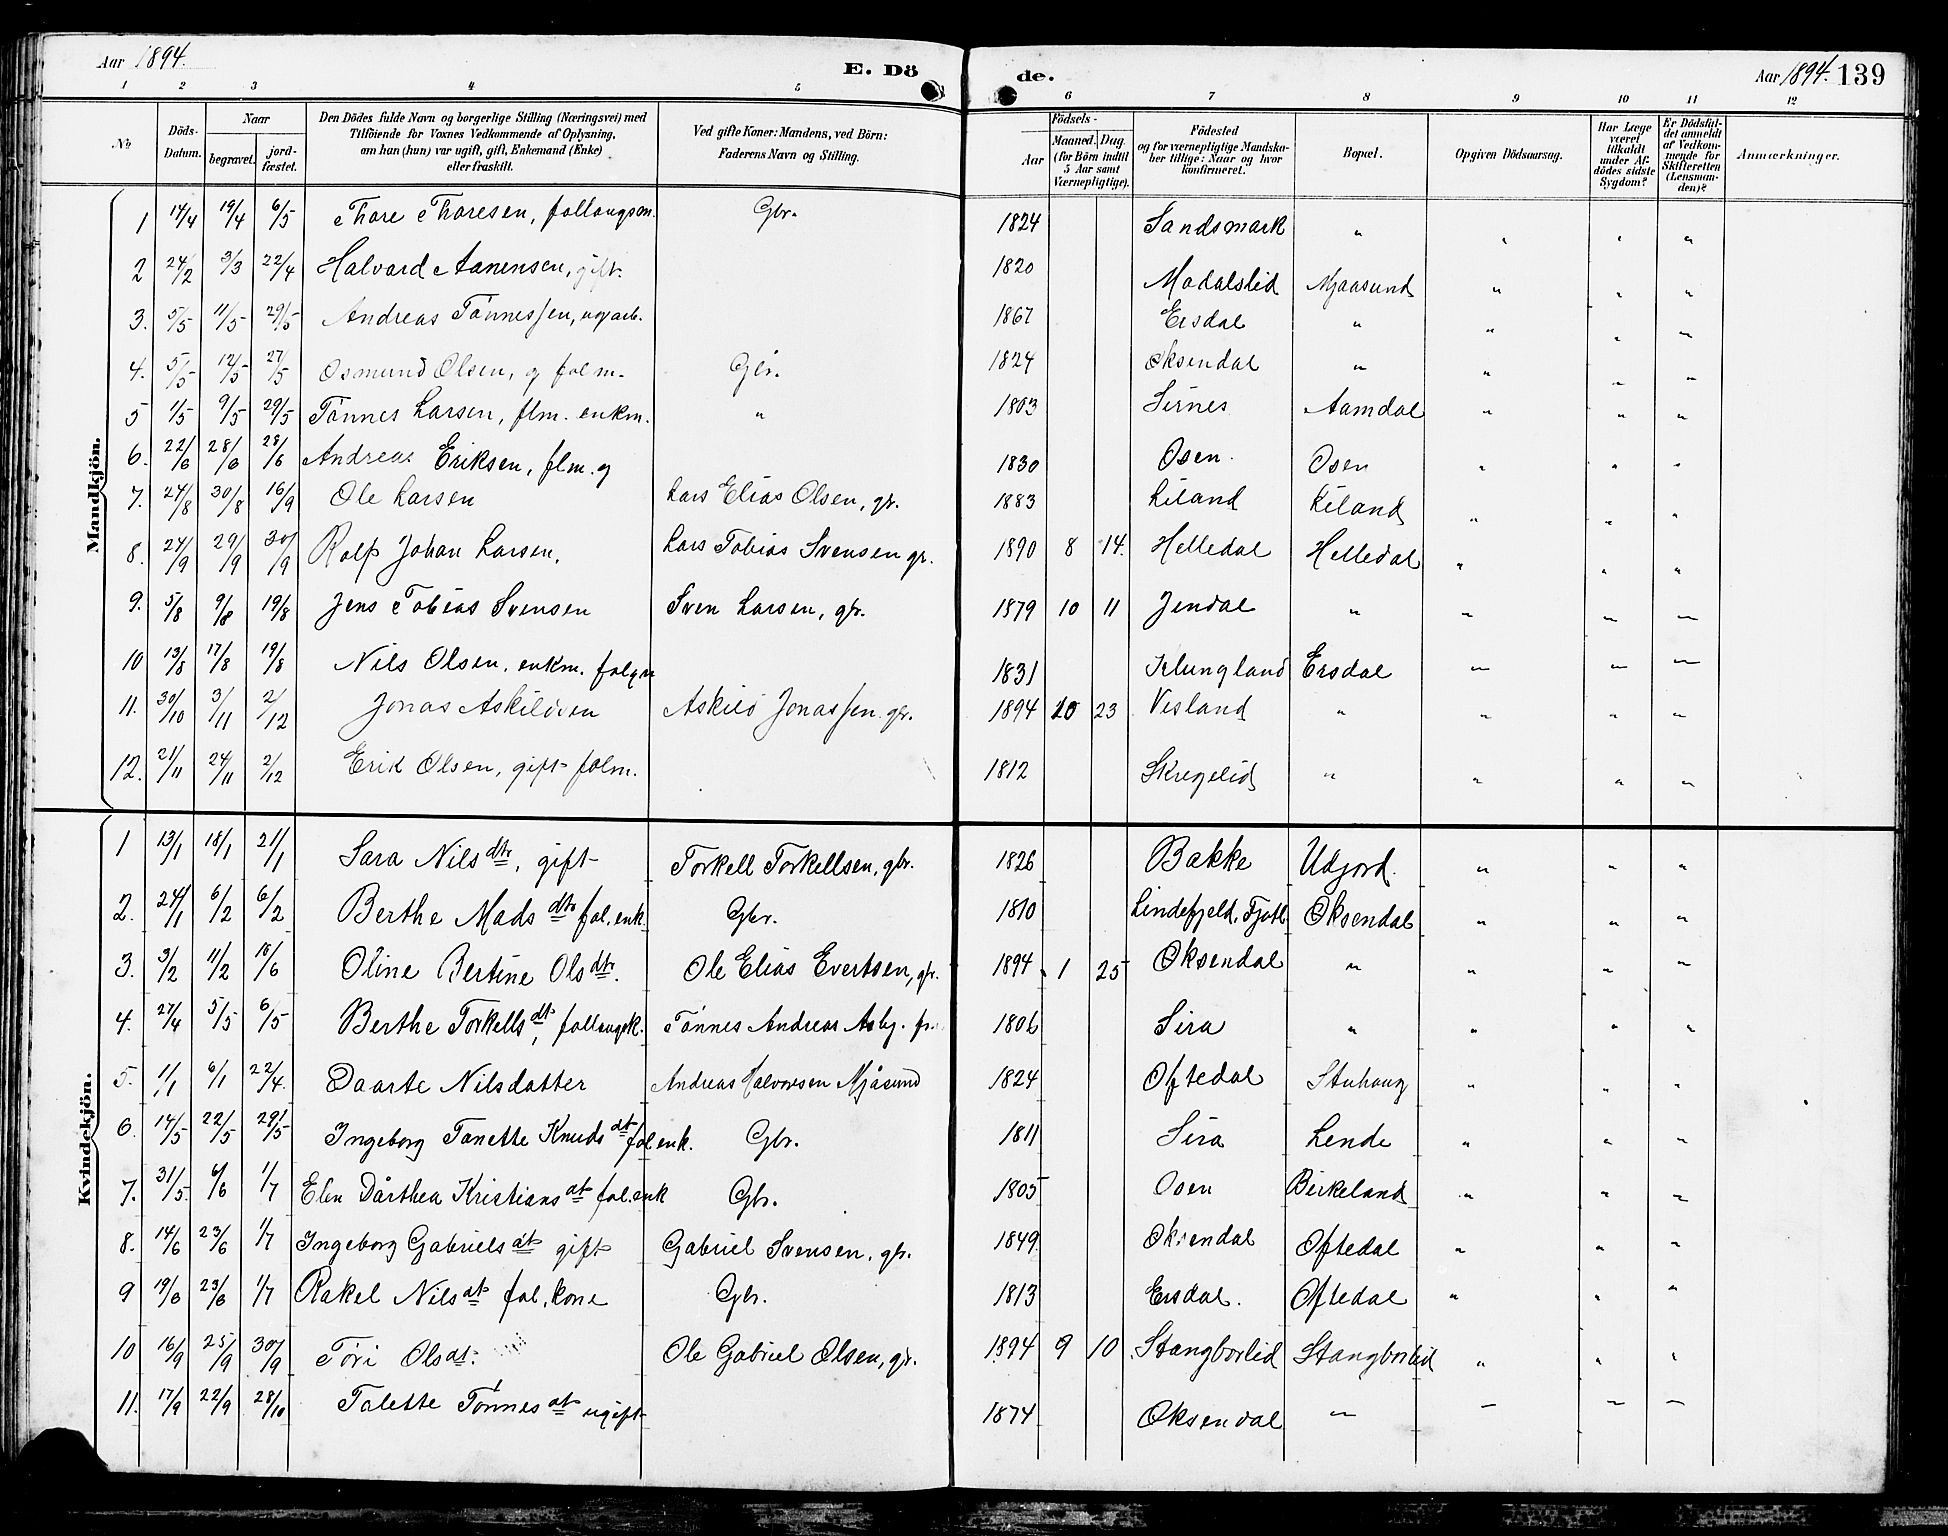 Aar 1894. E. Dö de. Aar 1894. 139
1 2 3 4 5 6 7 8 9 10 11 12
№ Döds-Datum. Naar begravet. jordfæstet. Den Dödes fulde Navn og borgerlige Stilling (Næringsvei) med Tilföiende for Voxnes Vedkommende af Oplysning, om han (hun) var ugift, gift, Enkemand (Enke) eller fraskilt. Ved gifte Koner: Mandens, ved Börn: Faderens Navn og Stilling. Födsels- Aar Maaned. Dag. (for Börn indtil 5 Aar samt Værnepligtige). Födested og for værnepligtige Mandskaber tillige: Naar og hvor konfirmeret. Bopæl. Opgiven Dödsaarsag. Har Læge været tilkaldt under Afdödes sidste Sygdom? Er Dödsfaldet anmeldt af Vedkommende for Skifteretten (Lensmanden)? Anmærkninger.
Mandkjön.
1 14/4 19/4 6/5 Thore Thoresen, follaugsm. Gbr. 1824 Sandsmark " " " "
2 24/2 3/3 22/4 Halvard Aanensen, gift. 1820 Modalslid Mjaasund " " "
3. 5/5 11/5 29/5 Andreas Tönnessen, ug arb. 1867 Ersdal " " " "
4. 5/5 12/5 27/5 Osmund Olsen, g fol m. Gbr. 1824 Øksendal " " " "
5 1/5 9/5 29/5 Tönnes Larsen, flm. enkm. " 1803 Sirnes Aamdal " " "
6. 22/6 28/6 28/6 Andreas Eriksen, flm. g 1830 Osen. Osen " " "
7. 24/8 30/8 16/9 Ole Larsen Lars Elias Olsen, gr. 1883 Liland Liland " " "
8. 24/9 29/9 30/9 Rolf Johan Larsen, Lars Tobias Svensen gr. 1890 8 14. Helledal Helledal " " "
9. 5/8 9/8 19/8 Jens Tobias Svensen Sven Larsen, gbr. 1879 10 11 Jendal " " " "
10 13/8 17/8 19/8 Nils Olsen, enkm. folgm 1831 Klungland Ersdal " " "
11. 30/10 3/11 2/12 Jonas Askildsen Askild Jonassen gbr. 1894 10 23 Vesland " " " "
12. 21/11 24/11 2/12 Erik Olsen, gift folm. 1812 Skregelid " " " "
Kvindekjön.
1 13/1 18/1 21/1 Sara Nilsdtr, gift Torkell Torkellsen, gbr. 1826 Bakke Udjord. " " "
2. 24/1 6/2 6/2 Berthe Madsdtr fol. enk. Gbr. 1810 Lindefjeld, Fjotl. Øksendal " " "
3. 3/2 11/2 10/6 Oline Bertine Olsdtr. Ole Elias Evertsen, gbr. 1894 1 25 Øksendal " " " "
4. 27/4 5/5 6/5 Berthe Torkellsdt, follaugsk. Tönnes Andreas Asbj. 1806 Sira " " " "
5. 1/1 6/1 22/4. Daarte Nilsdatter Andreas Halvorsen Mjåsund 1824 Oftedal Stuhaug " " "
6. 14/5 22/5 29/5 Ingeborg Tanette Knudsdt fol enk. Gbr. 1811 Sira Lende " " "
7. 31/5. 6/6 1/7 Elen Dårthea Kristiansdt fol. enk Gbr. 1805 Osen Birkeland " " "
8. 14/6 23/6 1/7 Ingeborg Gabrielsdt gift Gabriel Svensen, gbr. 1849. Øksendal Oftedal " " "
9 19/6 23/6 1/7 Rakel Nilsdt fol. kone Gbr. 1813 Ersdal. Oftedal " " "
10 16/9 25/9 30/9 Töri Olsdt. Ole Gabriel Olsen, gr. 1894 9 10 Stangborlid Stangborlid " " "
11. 17/9 22/9 28/10 Talette Tönnesdt ugift 1874 Øksendal " " " "